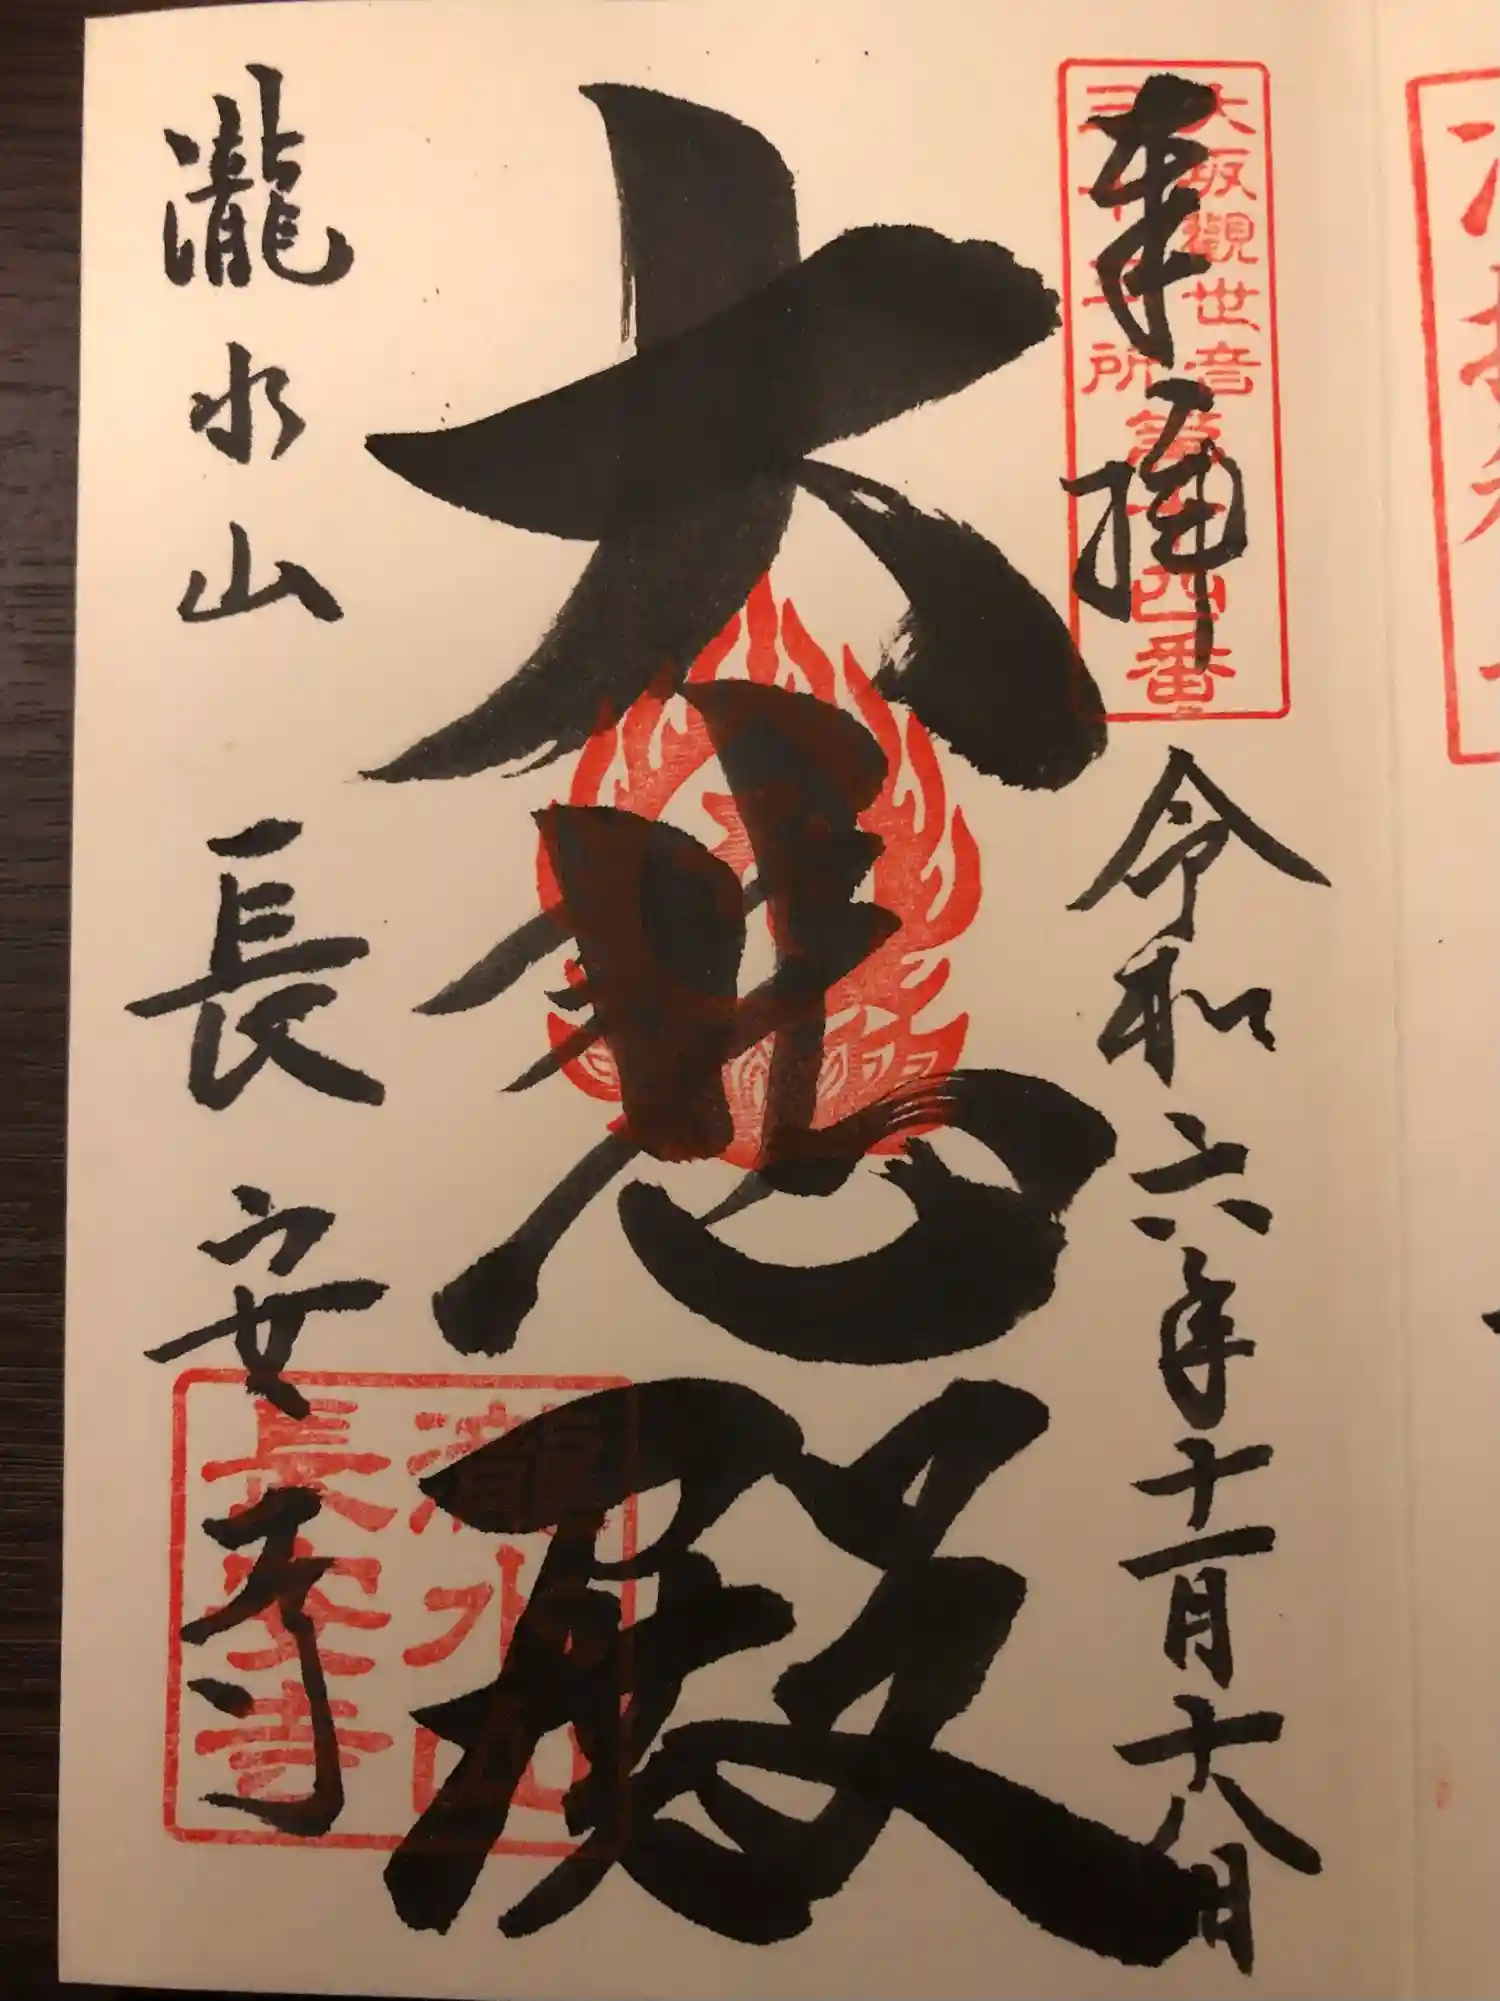 奉拝
令和六年十一月十八日
大坂觀世音
三十三所
第十四番
大悲殿
瀧水山
長安寺
瀧水山
長安寺